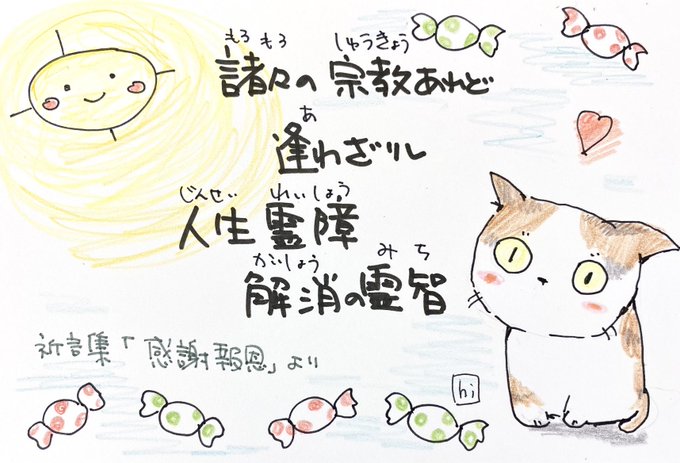 もろもろ しゅうきょう
諸々の 宗教あれど
あ
逢わざりし
じんせい れいしょう
人生霊障
かいしょう みち
解消の霊智
祈言集「感謝報恩」より
hi